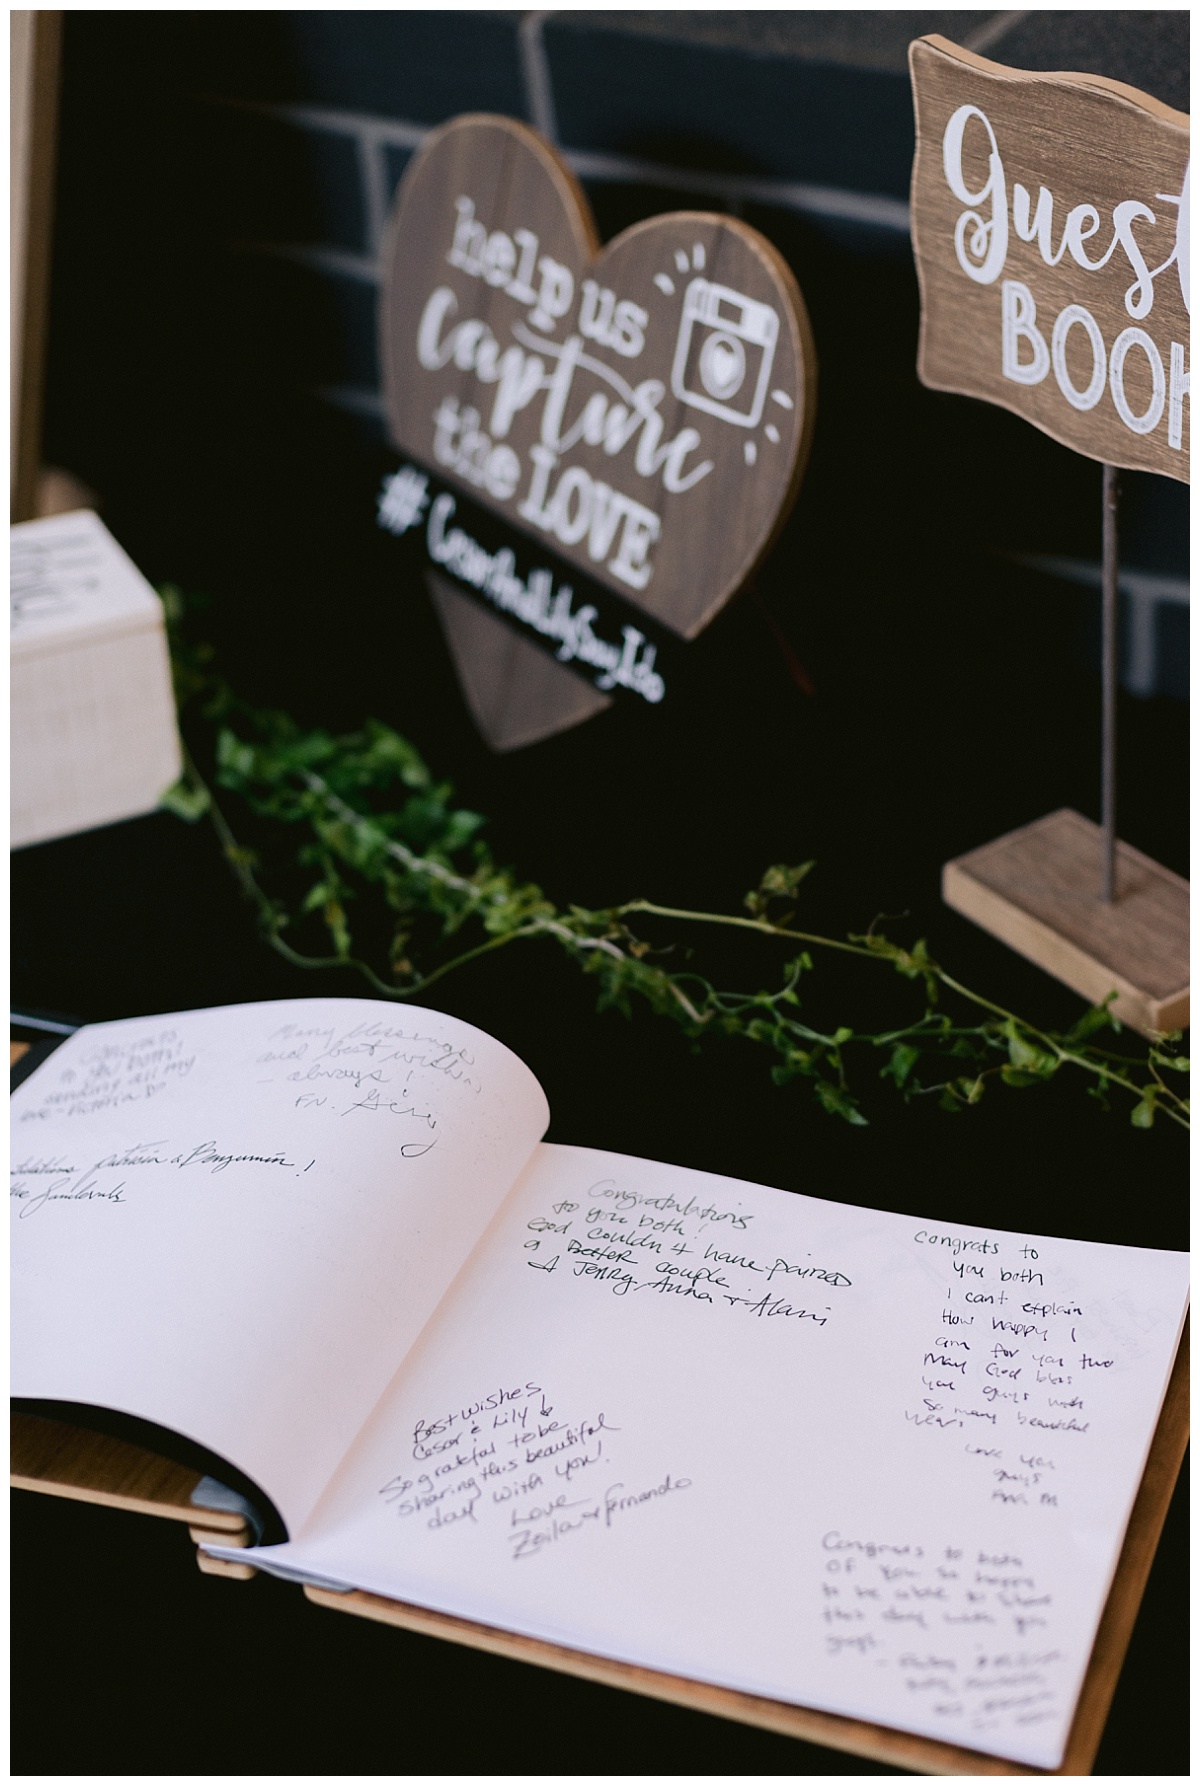 help us
capture
the LOVE
#CesarAndLilySayIdo
Guest
BOOK
Congrats
to you both!
sending all my
love - Victoria
Many blessings
and best wishes
- always!
FN.
patricia & Benjamin!
the Sandovals
Congratulations
to you both!
God couldn't have paired
a Better couple
Jerry, Anna + Alani
Best wishes
Cesar & Lily
So grateful to be
sharing this beautiful
day with you!
Love
Zoila & Fernando
congrats to
you both
I cant explain
How happy I
am for you two
May God bless
you guys with
so many beautiful
years
Love you
guys
Congrats to both
of you so happy
to be able to share
this day with you
guys.